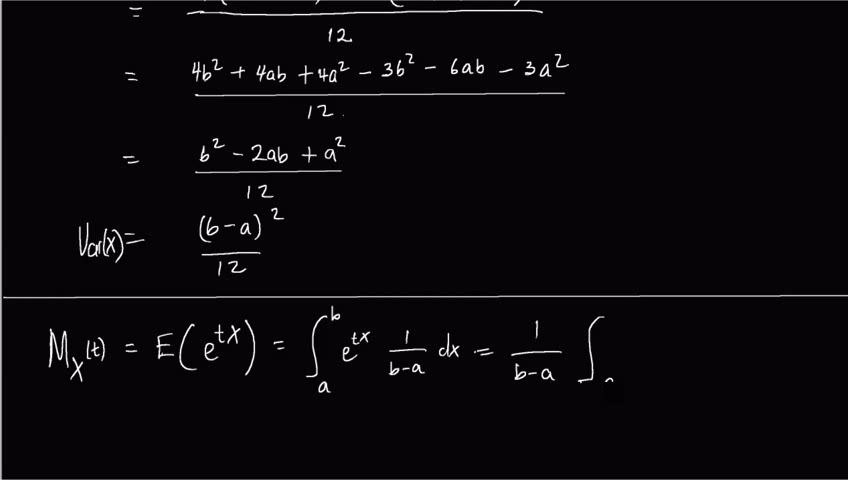 =
12
= 4b² + 4ab + 4a² - 3b² - 6ab - 3a²
12
= b² - 2ab + a²
12
Var(X) = (b-a)²
12
M_X(t) = E(e^{tX}) = ∫_a^b e^{tx} 1/(b-a) dx = 1/(b-a) ∫